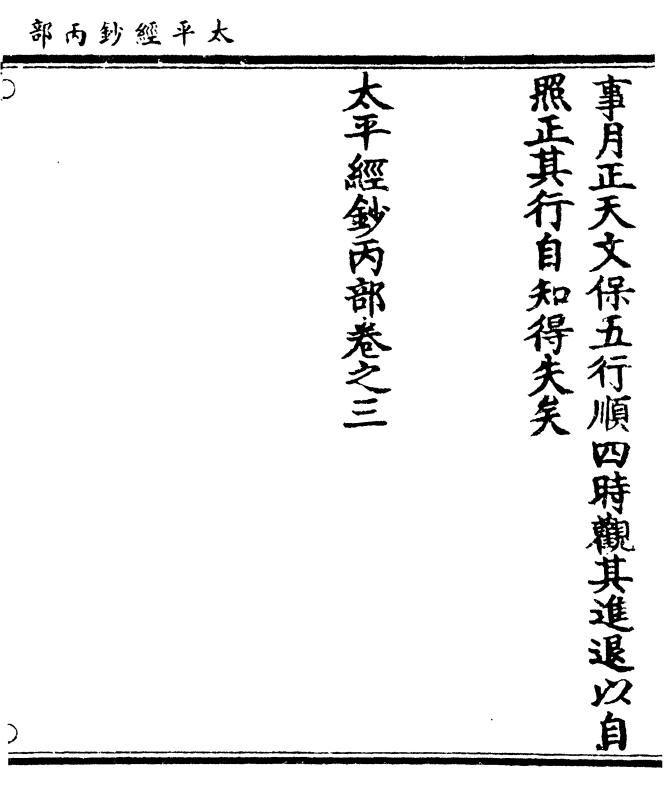 太平經鈔丙部
事月正天文保五行順四時觀其進退以自
照正其行自知得失矣
太平經鈔丙部卷之三